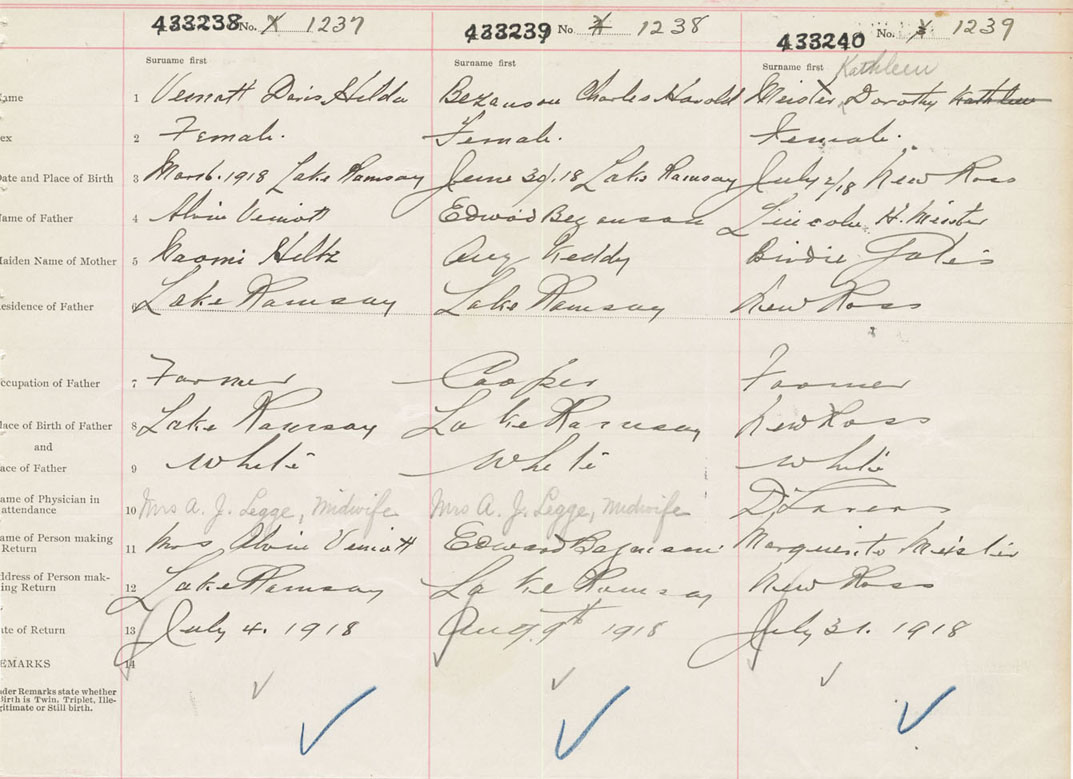 433238 No. X 1237 433239 No X 1238 433240 No. X 1239
Surname first Surname first Surname first Kathleen
ame 1 Veinott Doris Hilda Bezanson Charles Harold Meister, Dorothy Kathleen
ex 2 Female. Female. Female.
ate and Place of Birth 3 Mar 6. 1918 Lake Ramsay June 30/.18 Lake Ramsay July 2/18 New Ross
ame of Father 4 Alvin Veinott Edward Bezanson Lincoln H. Meister
aiden Name of Mother 5 Naomi Hiltz Keddy Birdie
esidence of Father 6 Lake Ramsay Lake Ramsay New Ross
ccupation of Father 7 Farmer Cooper Farmer
lace of Birth of Father 8 Lake Ramsay Lake Ramsay New Ross
and
ace of Father 9 White White White
ame of Physician in
attendance 10 Mrs A. J. Legge, Midwife Mrs A. J. Legge, Midwife
ame of Person making
Return 11 Mrs Alvin Veinott Edward Bezanson Meister
ddress of Person mak-
ing Return 12 Lake Ramsay Lake Ramsay New Ross
ate of Return 13 July 4. 1918 Aug. 9th 1918 July 31. 1918
EMARKS 14
nder Remarks state whether
Birth is Twin, Triplet, Ille-
gitimate or Still birth.